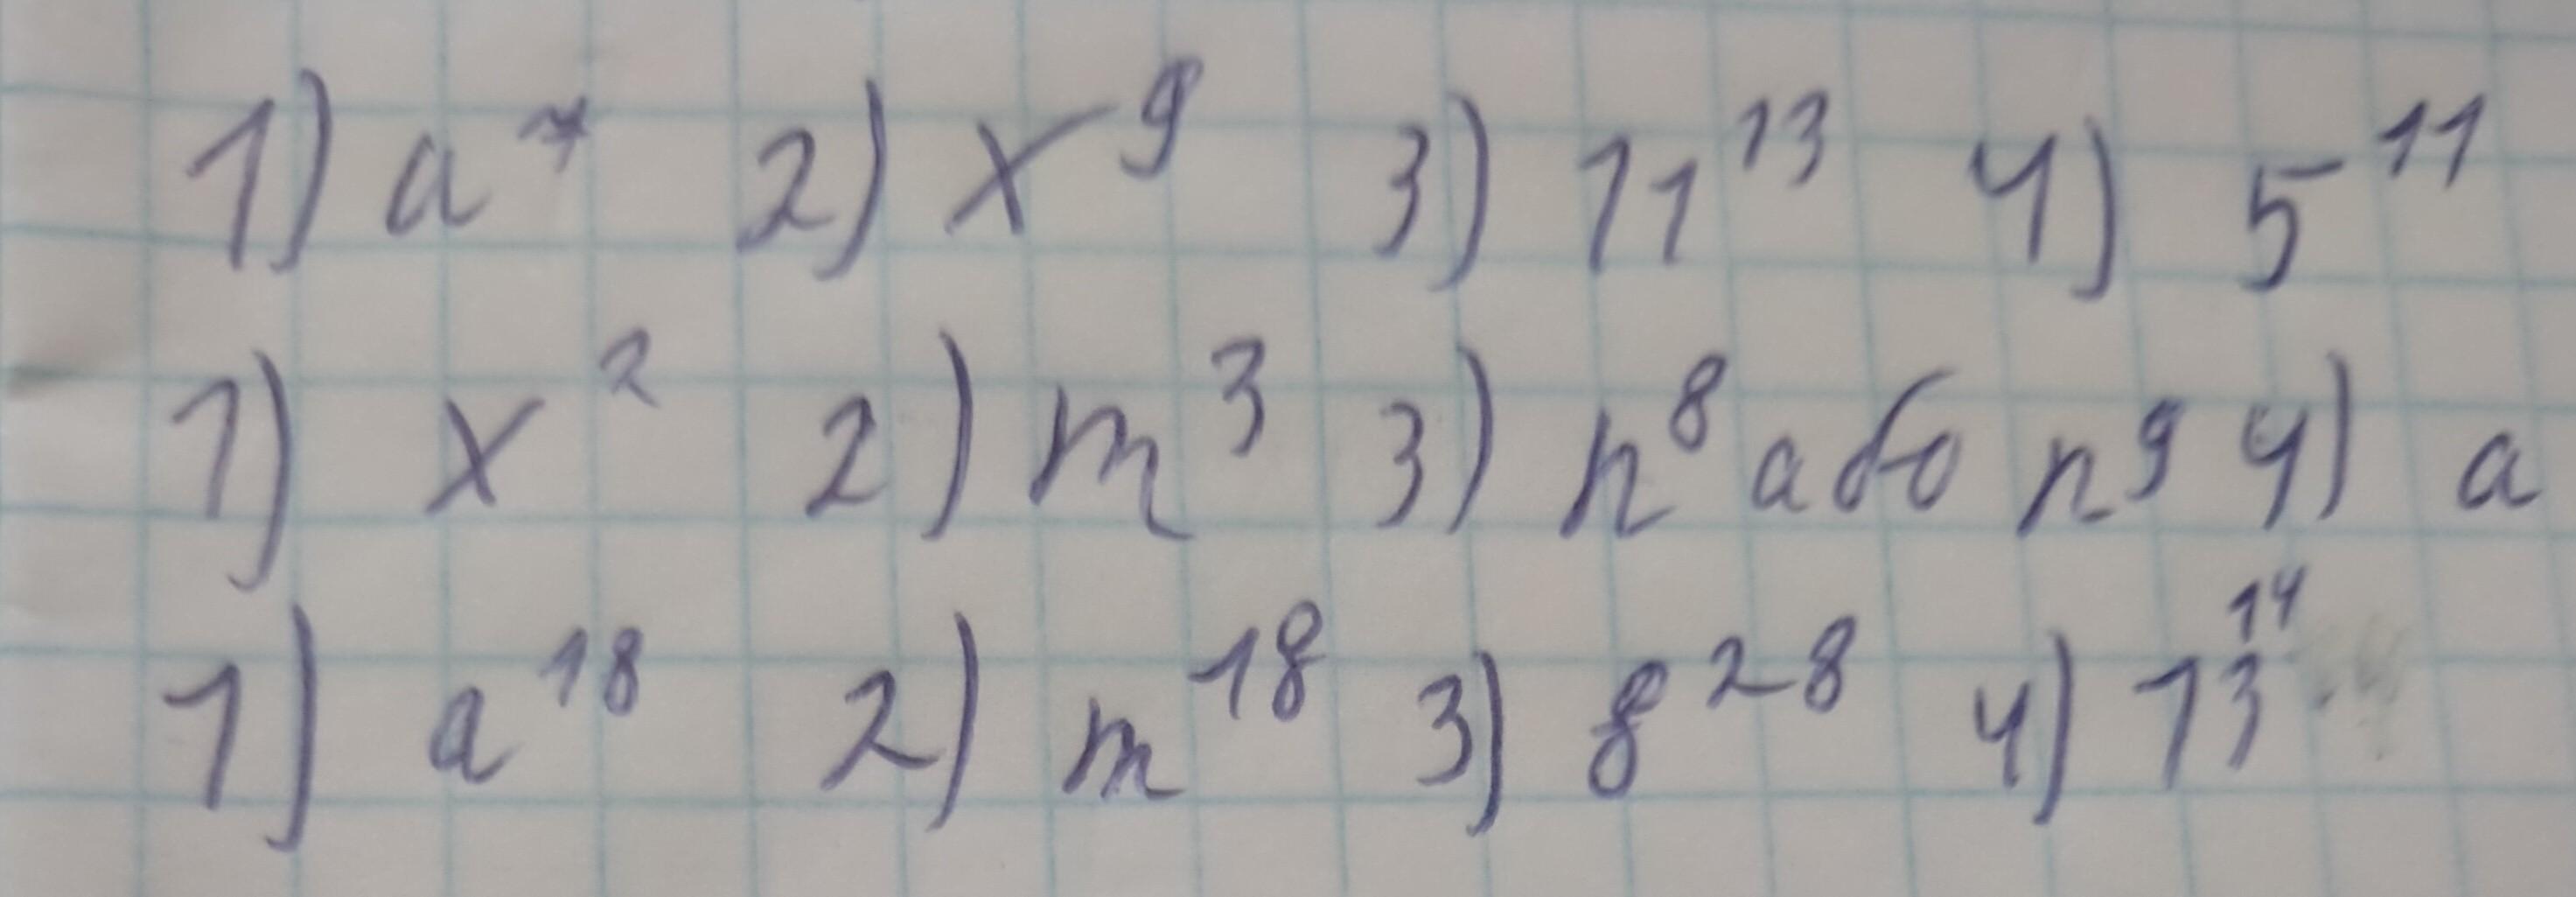 1) a⁷ 2) x⁹ 3) 11¹³ 4) 5¹¹
1) x² 2) m³ 3) n⁸ або n⁹ 4) a
1) a¹⁸ 2) m¹⁸ 3) 8²⁸ 4) 13¹⁴